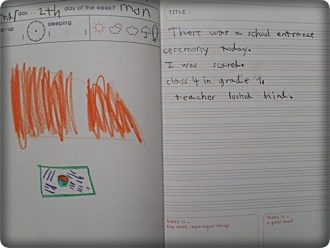 2th day of the week? mon
sleeping
TITLE :
There was a school entrance
ceremony today.
I was scared.
class 4 in grade 1.
teacher looked kind.
Today is...
the most important thing!
Today is...
a good deed!